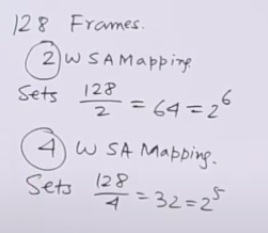 128 Frames.
2 W SA Mapping
Sets 128/2 = 64 = 2^6
4 W SA Mapping.
Sets 128/4 = 32 = 2^5